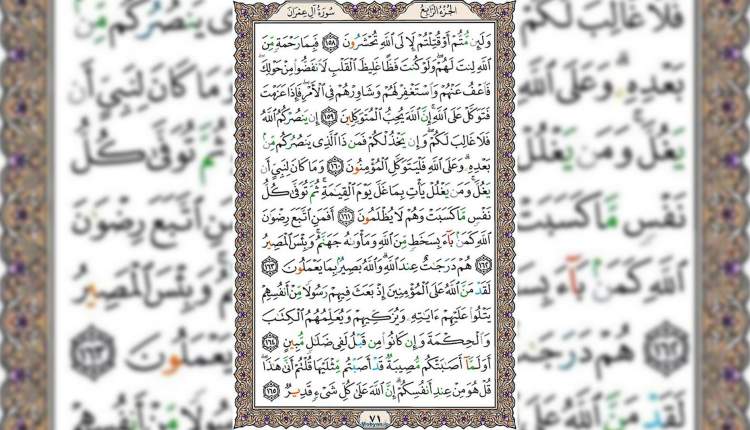 الجزء الرابع
سورة آل عمران
وَلَئِن مُّتُّمْ أَوْ قُتِلْتُمْ لَإِلَى اللَّهِ تُحْشَرُونَ ١٥٨ فَبِمَا رَحْمَةٍ مِّنَ
اللَّهِ لِنتَ لَهُمْ وَلَوْ كُنتَ فَظًّا غَلِيظَ الْقَلْبِ لَانفَضُّوا مِنْ حَوْلِكَ
فَاعْفُ عَنْهُمْ وَاسْتَغْفِرْ لَهُمْ وَشَاوِرْهُمْ فِي الْأَمْرِ فَإِذَا عَزَمْتَ
فَتَوَكَّلْ عَلَى اللَّهِ إِنَّ اللَّهَ يُحِبُّ الْمُتَوَكِّلِينَ ١٥٩ إِن يَنصُرْكُمُ اللَّهُ
فَلَا غَالِبَ لَكُمْ وَإِن يَخْذُلْكُمْ فَمَن ذَا الَّذِي يَنصُرُكُم مِّن
بَعْدِهِ وَعَلَى اللَّهِ فَلْيَتَوَكَّلِ الْمُؤْمِنُونَ ١٦٠ وَمَا كَانَ لِنَبِيٍّ أَن
يَغُلَّ وَمَن يَغْلُلْ يَأْتِ بِمَا غَلَّ يَوْمَ الْقِيَٰمَةِ ثُمَّ تُوَفَّىٰ كُلُّ
نَفْسٍ مَّا كَسَبَتْ وَهُمْ لَا يُظْلَمُونَ ١٦١ أَفَمَنِ اتَّبَعَ رِضْوَٰنَ
اللَّهِ كَمَن بَاءَ بِسَخَطٍ مِّنَ اللَّهِ وَمَأْوَىٰهُ جَهَنَّمُ وَبِئْسَ الْمَصِيرُ
١٦٢ هُمْ دَرَجَٰتٌ عِندَ اللَّهِ وَاللَّهُ بَصِيرٌ بِمَا يَعْمَلُونَ ١٦٣
لَقَدْ مَنَّ اللَّهُ عَلَى الْمُؤْمِنِينَ إِذْ بَعَثَ فِيهِمْ رَسُولًا مِّنْ أَنفُسِهِمْ
يَتْلُوا عَلَيْهِمْ ءَايَٰتِهِ وَيُزَكِّيهِمْ وَيُعَلِّمُهُمُ الْكِتَٰبَ
وَالْحِكْمَةَ وَإِن كَانُوا مِن قَبْلُ لَفِي ضَلَٰلٍ مُّبِينٍ ١٦٤
أَوَلَمَّا أَصَٰبَتْكُم مُّصِيبَةٌ قَدْ أَصَبْتُم مِّثْلَيْهَا قُلْتُمْ أَنَّىٰ هَٰذَا
قُلْ هُوَ مِنْ عِندِ أَنفُسِكُمْ إِنَّ اللَّهَ عَلَىٰ كُلِّ شَيْءٍ قَدِيرٌ ١٦٥
٧١